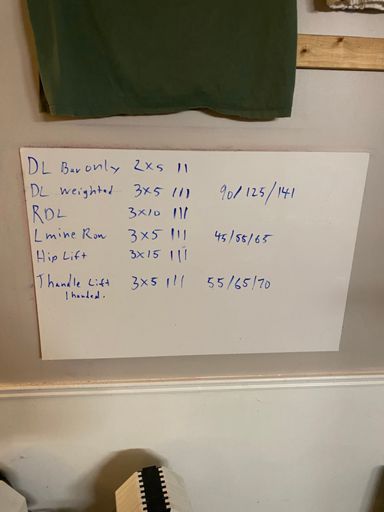 DL Bar only 2x5 II
DL weighted 3x5 III 90/125/141
RDL 3x10 III
Lmine Row 3x5 III 45/55/65
Hip Lift 3x15 III
Thandle Lift 3x5 III 55/65/70
1 handed.